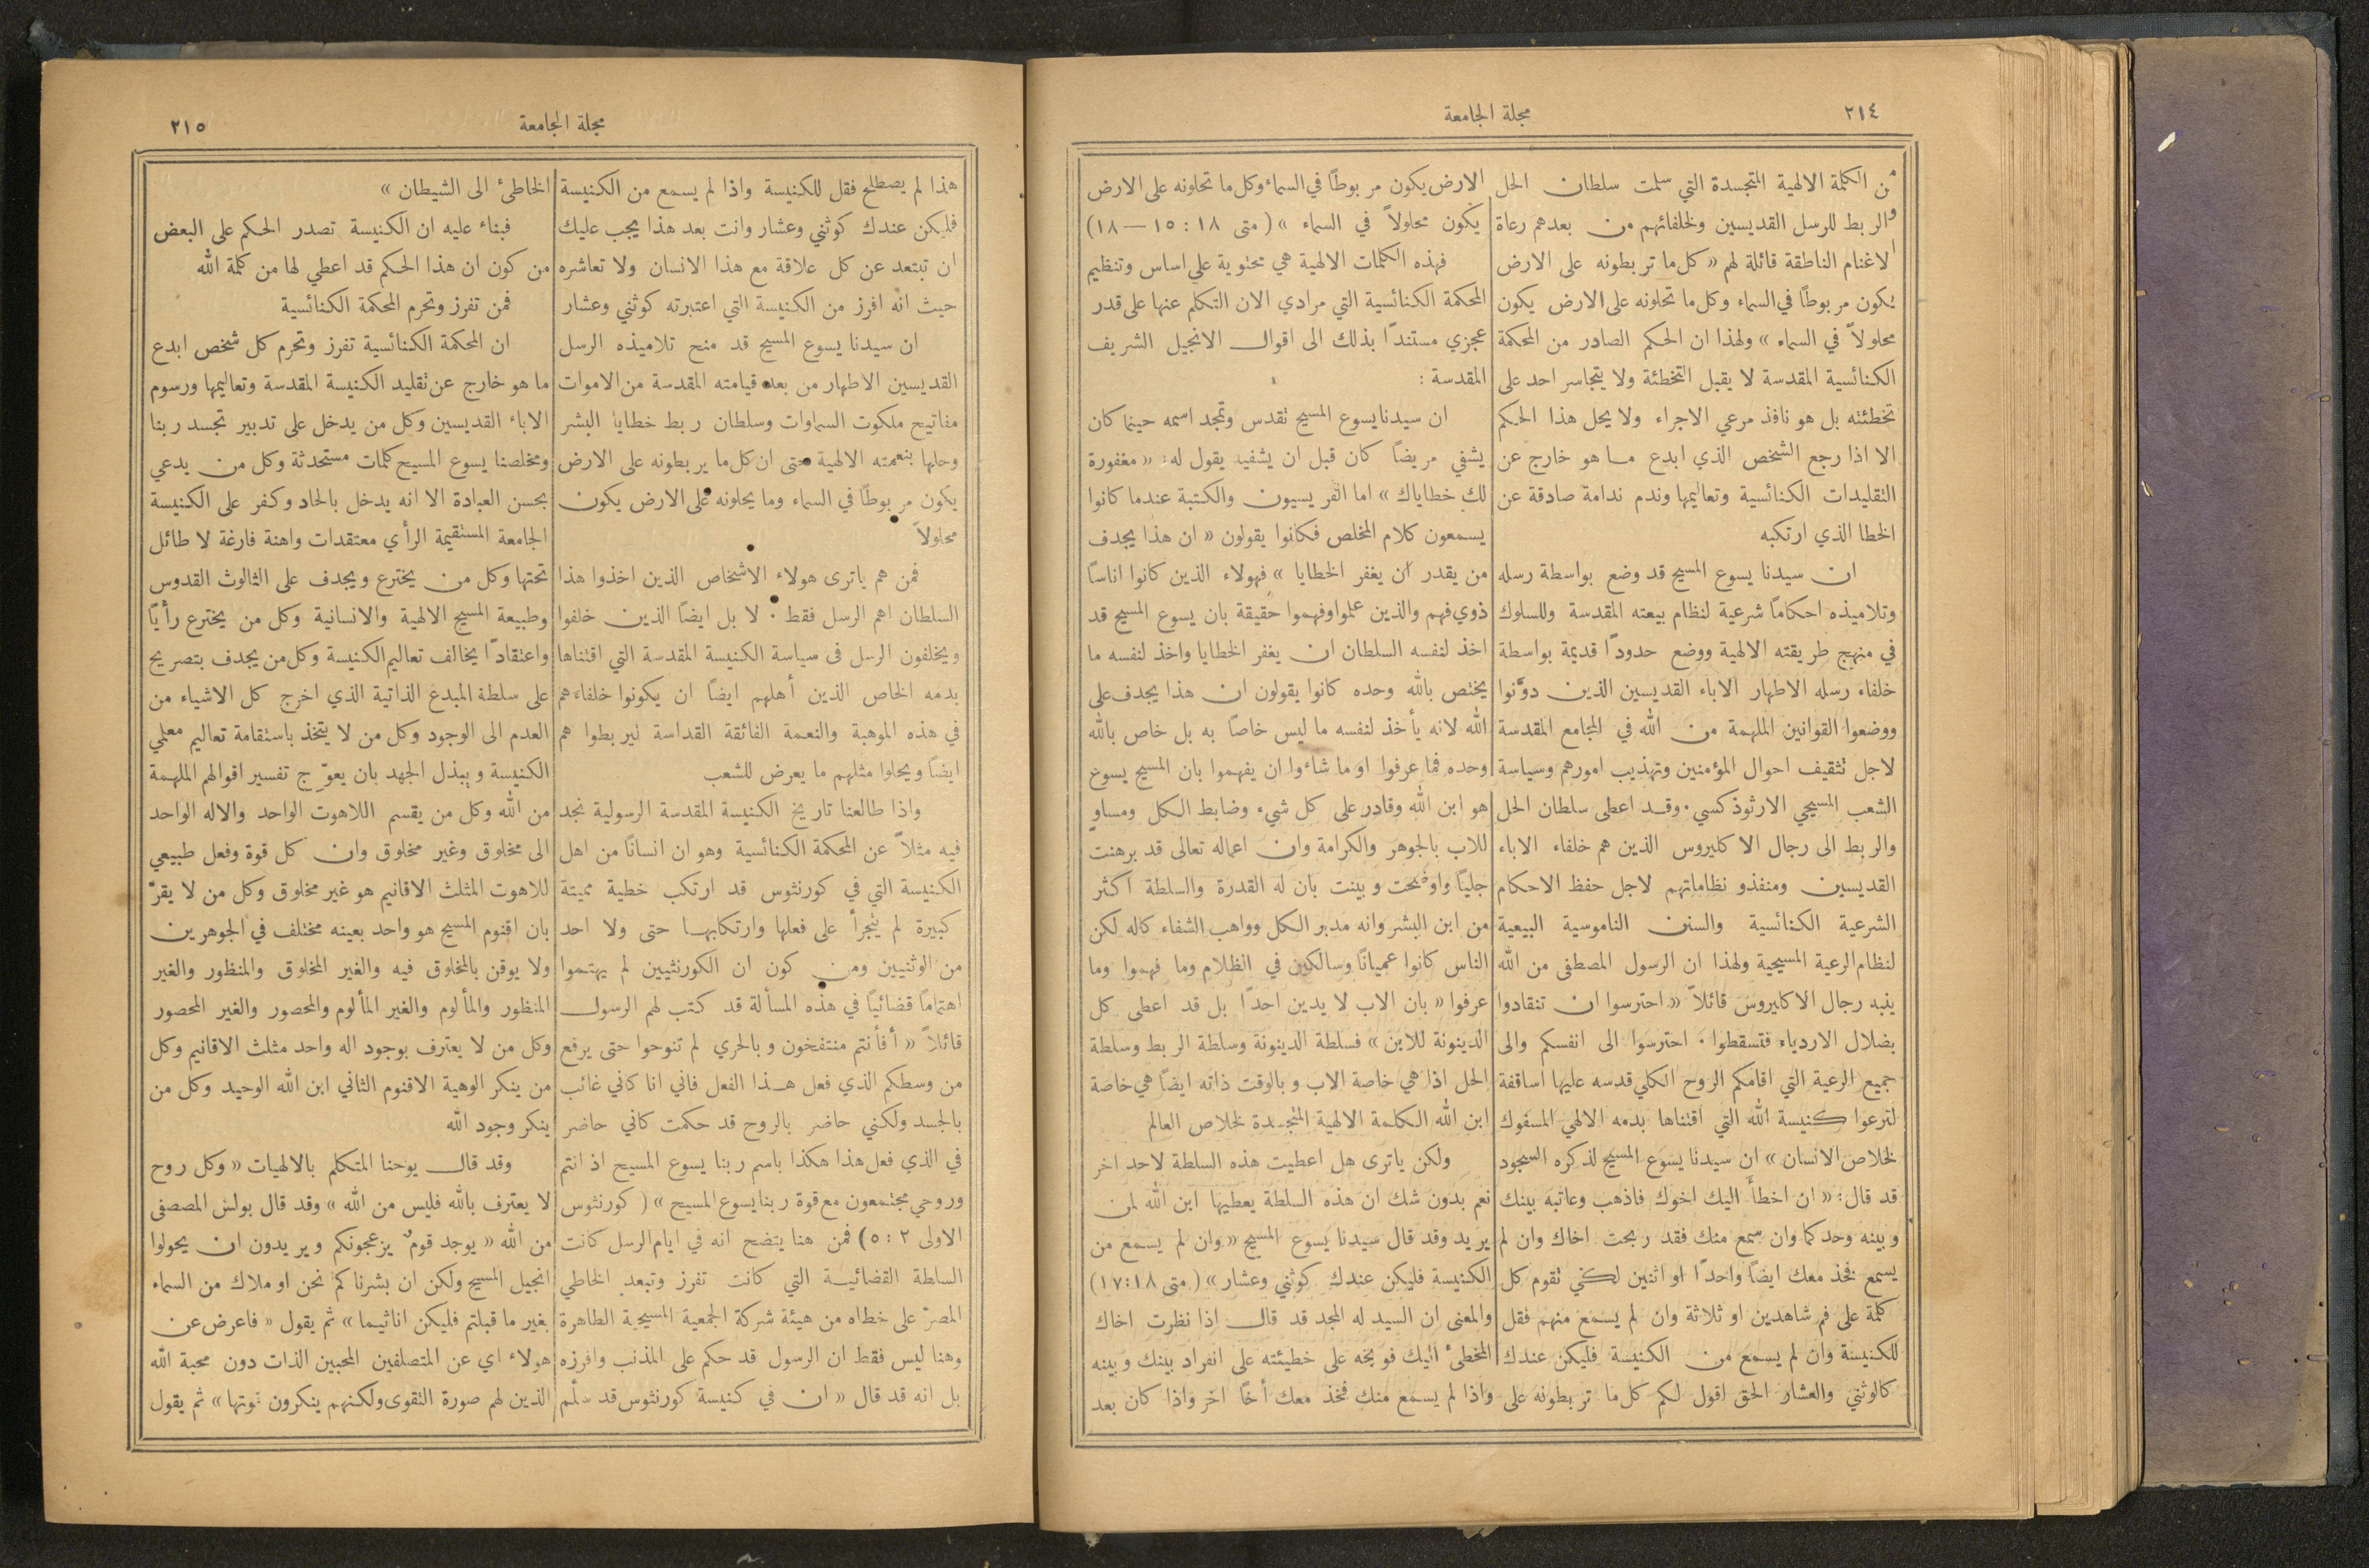 ٢١٤
مجلة الجامعة
من الكلمة الالهية المتجسدة التي سلمت سلطان الحل
والربط للرسل القديسين ولخلفائهم من بعدهم رعاة
الاغنام الناطقة قائلة لهم « كل ما تربطونه على الارض
يكون مربوطًا في السماء وكل ما تحلونه على الارض يكون
محلولاً في السماء » ولهذا ان الحكم الصادر من المحكمة
الكنائسية المقدسة لا يقبل التخطئة ولا يتجاسر احد على
تخطئته بل هو نافذ مرعي الاجراء ولا يحل هذا الحكم
الا اذا رجع الشخص الذي ابدع ما هو خارج عن
التقليدات الكنائسية وتعاليمها وندم ندامة صادقة عن
الخطا الذي ارتكبه
ان سيدنا يسوع المسيح قد وضع بواسطة رسله
وتلاميذه احكامًا شرعية لنظام بيعته المقدسة وللسلوك
في منهج طريقته الالهية ووضع حدودًا قديمة بواسطة
خلفاء رسله الاطهار الاباء القديسين الذين دوَّنوا
ووضعوا القوانين الملهمة من الله في المجامع المقدسة
لاجل تثقيف احوال المؤمنين وتهذيب امورهم وسياسة
الشعب المسيحي الارثوذكسي. وقد اعطى سلطان الحل
والربط الى رجال الاكليروس الذين هم خلفاء الاباء
القديسين ومنفذو نظاماتهم لاجل حفظ الاحكام
الشرعية الكنائسية والسنن الناموسية البيعية
لنظام الرعية المسيحية ولهذا ان الرسول المصطفى من الله
ينبه رجال الاكليروس قائلاً « احترسوا ان تنقادوا
بضلال الاردياء فتسقطوا. احترسوا الى انفسكم والى
جميع الرعية التي اقامكم الروح الكلي قدسه عليها اساقفة
لترعوا كنيسة الله التي اقتناها بدمه الالهي المسفوك
لخلاص الانسان » ان سيدنا يسوع المسيح لذكره السجود
قد قال: « ان اخطأَ اليك اخوك فاذهب وعاتبه بينك
وبينه وحدكما وان سمع منك فقد ربحت اخاك وان لم
يسمع فخذ معك ايضًا واحدًا او اثنين لكي تقوم كل
كلمة على فم شاهدين او ثلاثة وان لم يسمع منهم فقل
للكنيسة وان لم يسمع من الكنيسة فليكن عندك
كالوثني والعشار الحق اقول لكم كل ما تربطونه على
الارض يكون مربوطًا في السماء وكل ما تحلونه على الارض
يكون محلولاً في السماء » ( متى ١٨ : ١٥ — ١٨ )
فهذه الكلمات الالهية هي محتوية على اساس وتنظيم
المحكمة الكنائسية التي مرادي الان التكلم عنها على قدر
عجزي مستندًا بذلك الى اقوال الانجيل الشريف
المقدسة :
ان سيدنا يسوع المسيح تقدس وتمجد اسمه حينما كان
يشفي مريضًا كان قبل ان يشفيه يقول له: « مغفورة
لك خطاياك » اما الفريسيون والكتبة عندما كانوا
يسمعون كلام المخلص فكانوا يقولون « ان هذا يجدف
من يقدر ان يغفر الخطايا » فهولاء الذين كانوا اناسًا
ذوي فهم والذين علموا وفهموا حقيقة بان يسوع المسيح قد
اخذ لنفسه السلطان ان يغفر الخطايا واخذ لنفسه ما
يختص بالله وحده كانوا يقولون ان هذا يجدف على
الله لانه يأخذ لنفسه ما ليس خاصًا به بل خاص بالله
وحده فما عرفوا او ما شاءوا ان يفهموا بان المسيح يسوع
هو ابن الله وقادر على كل شيء وضابط الكل ومساوٍ
للاب بالجوهر والكرامة وان اعماله تعالى قد برهنت
جليًا واوضحت وبينت بان له القدرة والسلطة اكثر
من ابن البشر وانه مدبر الكل وواهب الشفاء كاله لكن
الناس كانوا عميانًا وسالكين في الظلام وما فهموا وما
عرفوا « بان الاب لا يدين احدًا بل قد اعطى كل
الدينونة للابن » فسلطة الدينونة وسلطة الربط وسلطة
الحل اذا هي خاصة الاب وبالوقت ذاته ايضًا هي خاصة
ابن الله الكلمة الالهية المتجسدة لخلاص العالم
ولكن ياترى هل اعطيت هذه السلطة لاحد اخر
نعم بدون شك ان هذه السلطة يعطيها ابن الله لمن
يريد وقد قال سيدنا يسوع المسيح « وان لم يسمع من
الكنيسة فليكن عندك كوثني وعشار » ( متى ١٨:١٧ )
والمعنى ان السيد له المجد قد قال اذا نظرت اخاك
المخطئ اليك فوبخه على خطيئته على انفراد بينك وبينه
واذا لم يسمع منك فخذ معك أخًا اخر واذا كان بعد
مجلة الجامعة
٢١٥
هذا لم يصطلح فقل للكنيسة واذا لم يسمع من الكنيسة
فليكن عندك كوثني وعشار وانت بعد هذا يجب عليك
ان تبتعد عن كل علاقة مع هذا الانسان ولا تعاشره
حيث انه افرز من الكنيسة التي اعتبرته كوثني وعشار
ان سيدنا يسوع المسيح قد منح تلاميذه الرسل
القديسين الاطهار من بعد قيامته المقدسة من الاموات
مفاتيح ملكوت السماوات وسلطان ربط خطايا البشر
وحلها بنعمته الالهية حتى ان كل ما يربطونه على الارض
يكون مربوطًا في السماء وما يحلونه على الارض يكون
محلولاً
فمن هم ياترى هولاء الاشخاص الذين اخذوا هذا
السلطان اهم الرسل فقط. لا بل ايضًا الذين خلفوا
ويخلفون الرسل في سياسة الكنيسة المقدسة التي اقتناها
بدمه الخاص الذين أهلهم ايضًا ان يكونوا خلفاءهم
في هذه الموهبة والنعمة الفائقة القداسة ليربطوا هم
ايضًا ويحلوا مثلهم ما يعرض للشعب
واذا طالعنا تاريخ الكنيسة المقدسة الرسولية نجد
فيه مثلاً عن المحكمة الكنائسية وهو ان انسانًا من اهل
الكنيسة التي في كورنثوس قد ارتكب خطية مميتة
كبيرة لم يتجرأ على فعلها وارتكابها حتى ولا احد
من الوثنيين ومن كون ان الكورنثيين لم يهتموا
اهتمامًا قضائيًا في هذه المسألة قد كتب لهم الرسول
قائلاً « أفأنتم منتفخون وبالحري لم تنوحوا حتى يرفع
من وسطكم الذي فعل هذا الفعل فاني انا كاني غائب
بالجسد ولكني حاضر بالروح قد حكمت كاني حاضر
في الذي فعل هذا هكذا باسم ربنا يسوع المسيح اذ انتم
وروحي مجتمعون مع قوة ربنا يسوع المسيح » ( كورنثوس
الاولى ٢ : ٥ ) فمن هنا يتضح انه في ايام الرسل كانت
السلطة القضائية التي كانت تفرز وتبعد الخاطي
المصرّ على خطاه من هيئة شركة الجمعية المسيحية الطاهرة
وهنا ليس فقط ان الرسول قد حكم على المذنب وافرزه
بل انه قد قال « ان في كنيسة كورنثوس قد سلّم
الخاطئ الى الشيطان »
فبناء عليه ان الكنيسة تصدر الحكم على البعض
من كون ان هذا الحكم قد اعطي لها من كلمة الله
فمن تفرز وتحرم المحكمة الكنائسية
ان المحكمة الكنائسية تفرز وتحرم كل شخص ابدع
ما هو خارج عن تقليد الكنيسة المقدسة وتعاليمها ورسوم
الاباء القديسين وكل من يدخل على تدبير تجسد ربنا
ومخلصنا يسوع المسيح كلمات مستحدثة وكل من يدعي
بحسن العبادة الا انه يدخل بالحاد وكفر على الكنيسة
الجامعة المستقيمة الرأي معتقدات واهنة فارغة لا طائل
تحتها وكل من يخترع ويجدف على الثالوث القدوس
وطبيعة المسيح الالهية والانسانية وكل من يخترع رأيًا
واعتقادًا يخالف تعاليم الكنيسة وكل من يجدف بتصريح
على سلطة المبدع الذاتية الذي اخرج كل الاشياء من
العدم الى الوجود وكل من لا يتخذ باستقامة تعاليم معلمي
الكنيسة ويبذل الجهد بان يعوّج تفسير اقوالهم الملهمة
من الله وكل من يقسم اللاهوت الواحد والاله الواحد
الى مخلوق وغير مخلوق وان كل قوة وفعل طبيعي
للاهوت المثلث الاقانيم هو غير مخلوق وكل من لا يقرّ
بان اقنوم المسيح هو واحد بعينه مختلف في الجوهرين
ولا يوقن بالمخلوق فيه والغير المخلوق والمنظور والغير
المنظور والمألوم والغير المألوم والمحصور والغير المحصور
وكل من لا يعترف بوجود اله واحد مثلث الاقانيم وكل
من ينكر الوهية الاقنوم الثاني ابن الله الوحيد وكل من
ينكر وجود الله
وقد قال يوحنا المتكلم بالالهيات « وكل روح
لا يعترف بالله فليس من الله » وقد قال بولس المصصفى
من الله « يوجد قومٌ يزعجونكم ويريدون ان يحولوا
انجيل المسيح ولكن ان بشرناكم نحن او ملاك من السماء
بغير ما قبلتم فليكن اناثيما » ثم يقول « فاعرض عن
هولاء اي عن المتصلفين المحبين الذات دون محبة الله
الذين لهم صورة التقوى ولكنهم ينكرون قوتها » ثم يقول